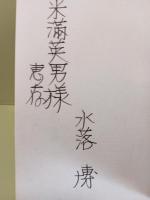 米滿英男様
恵存
水落 博